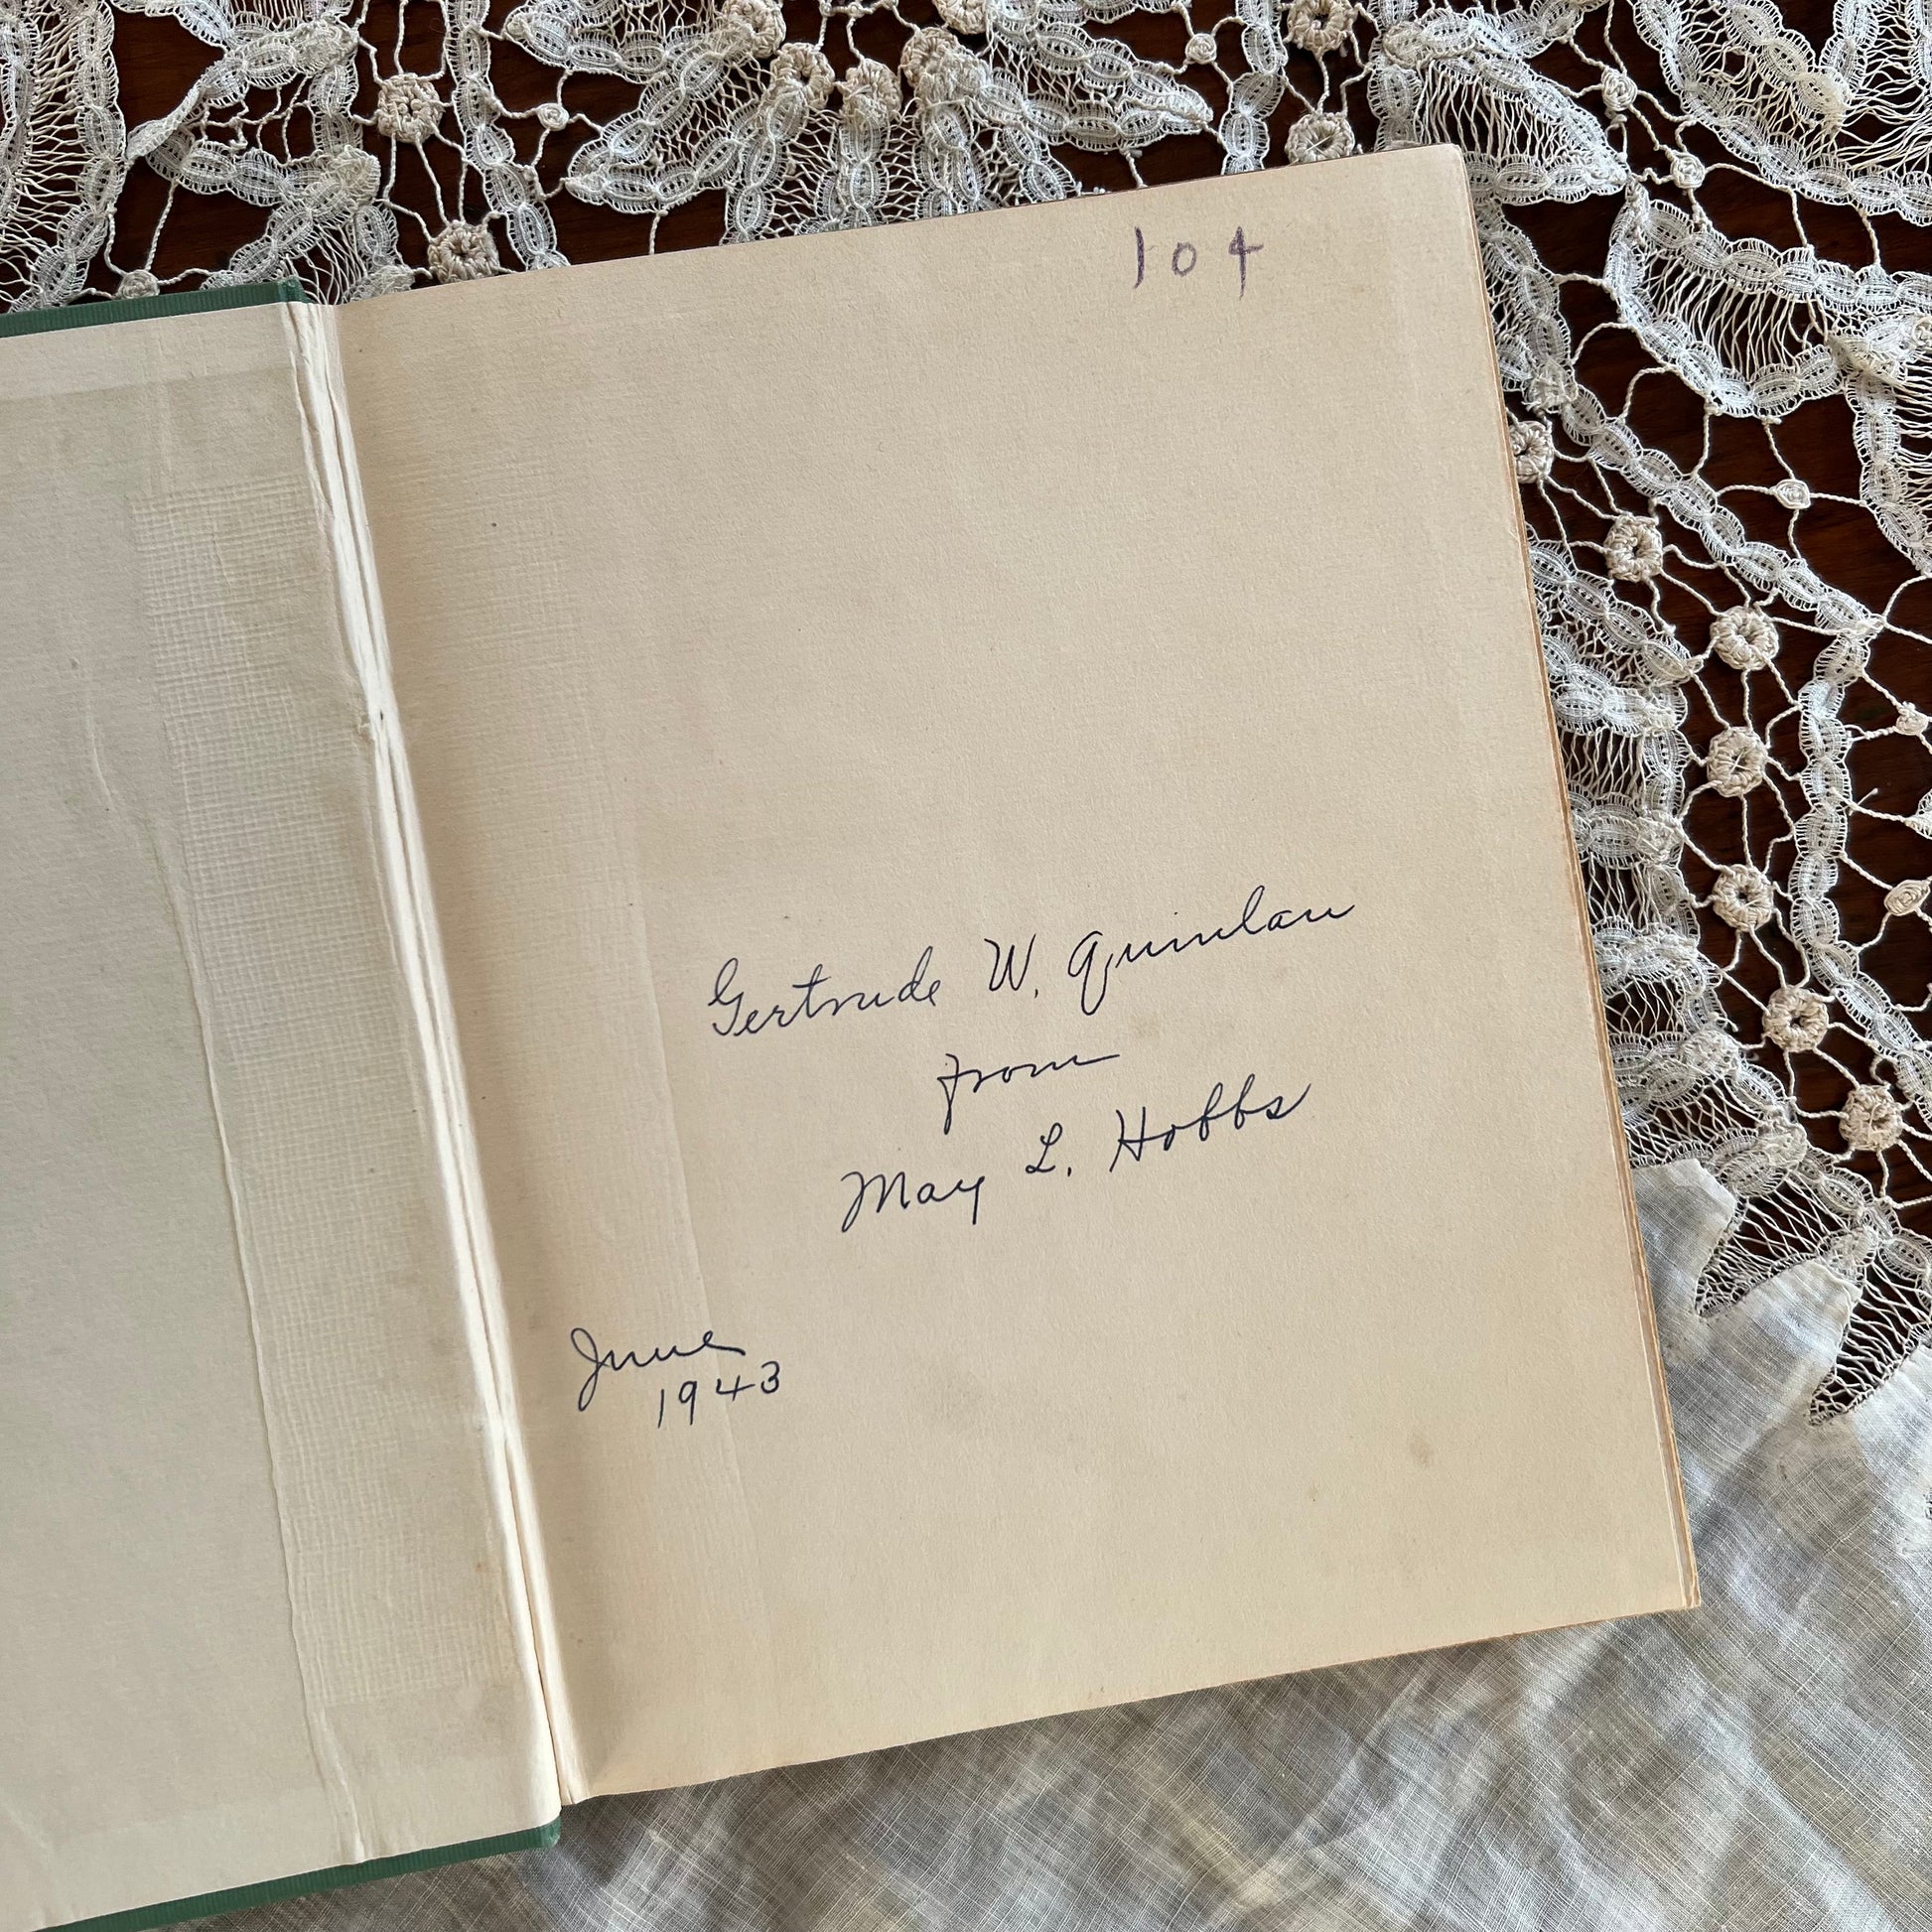 104
Gertrude W. Quinlan
from
May L. Hobbs
June
1943